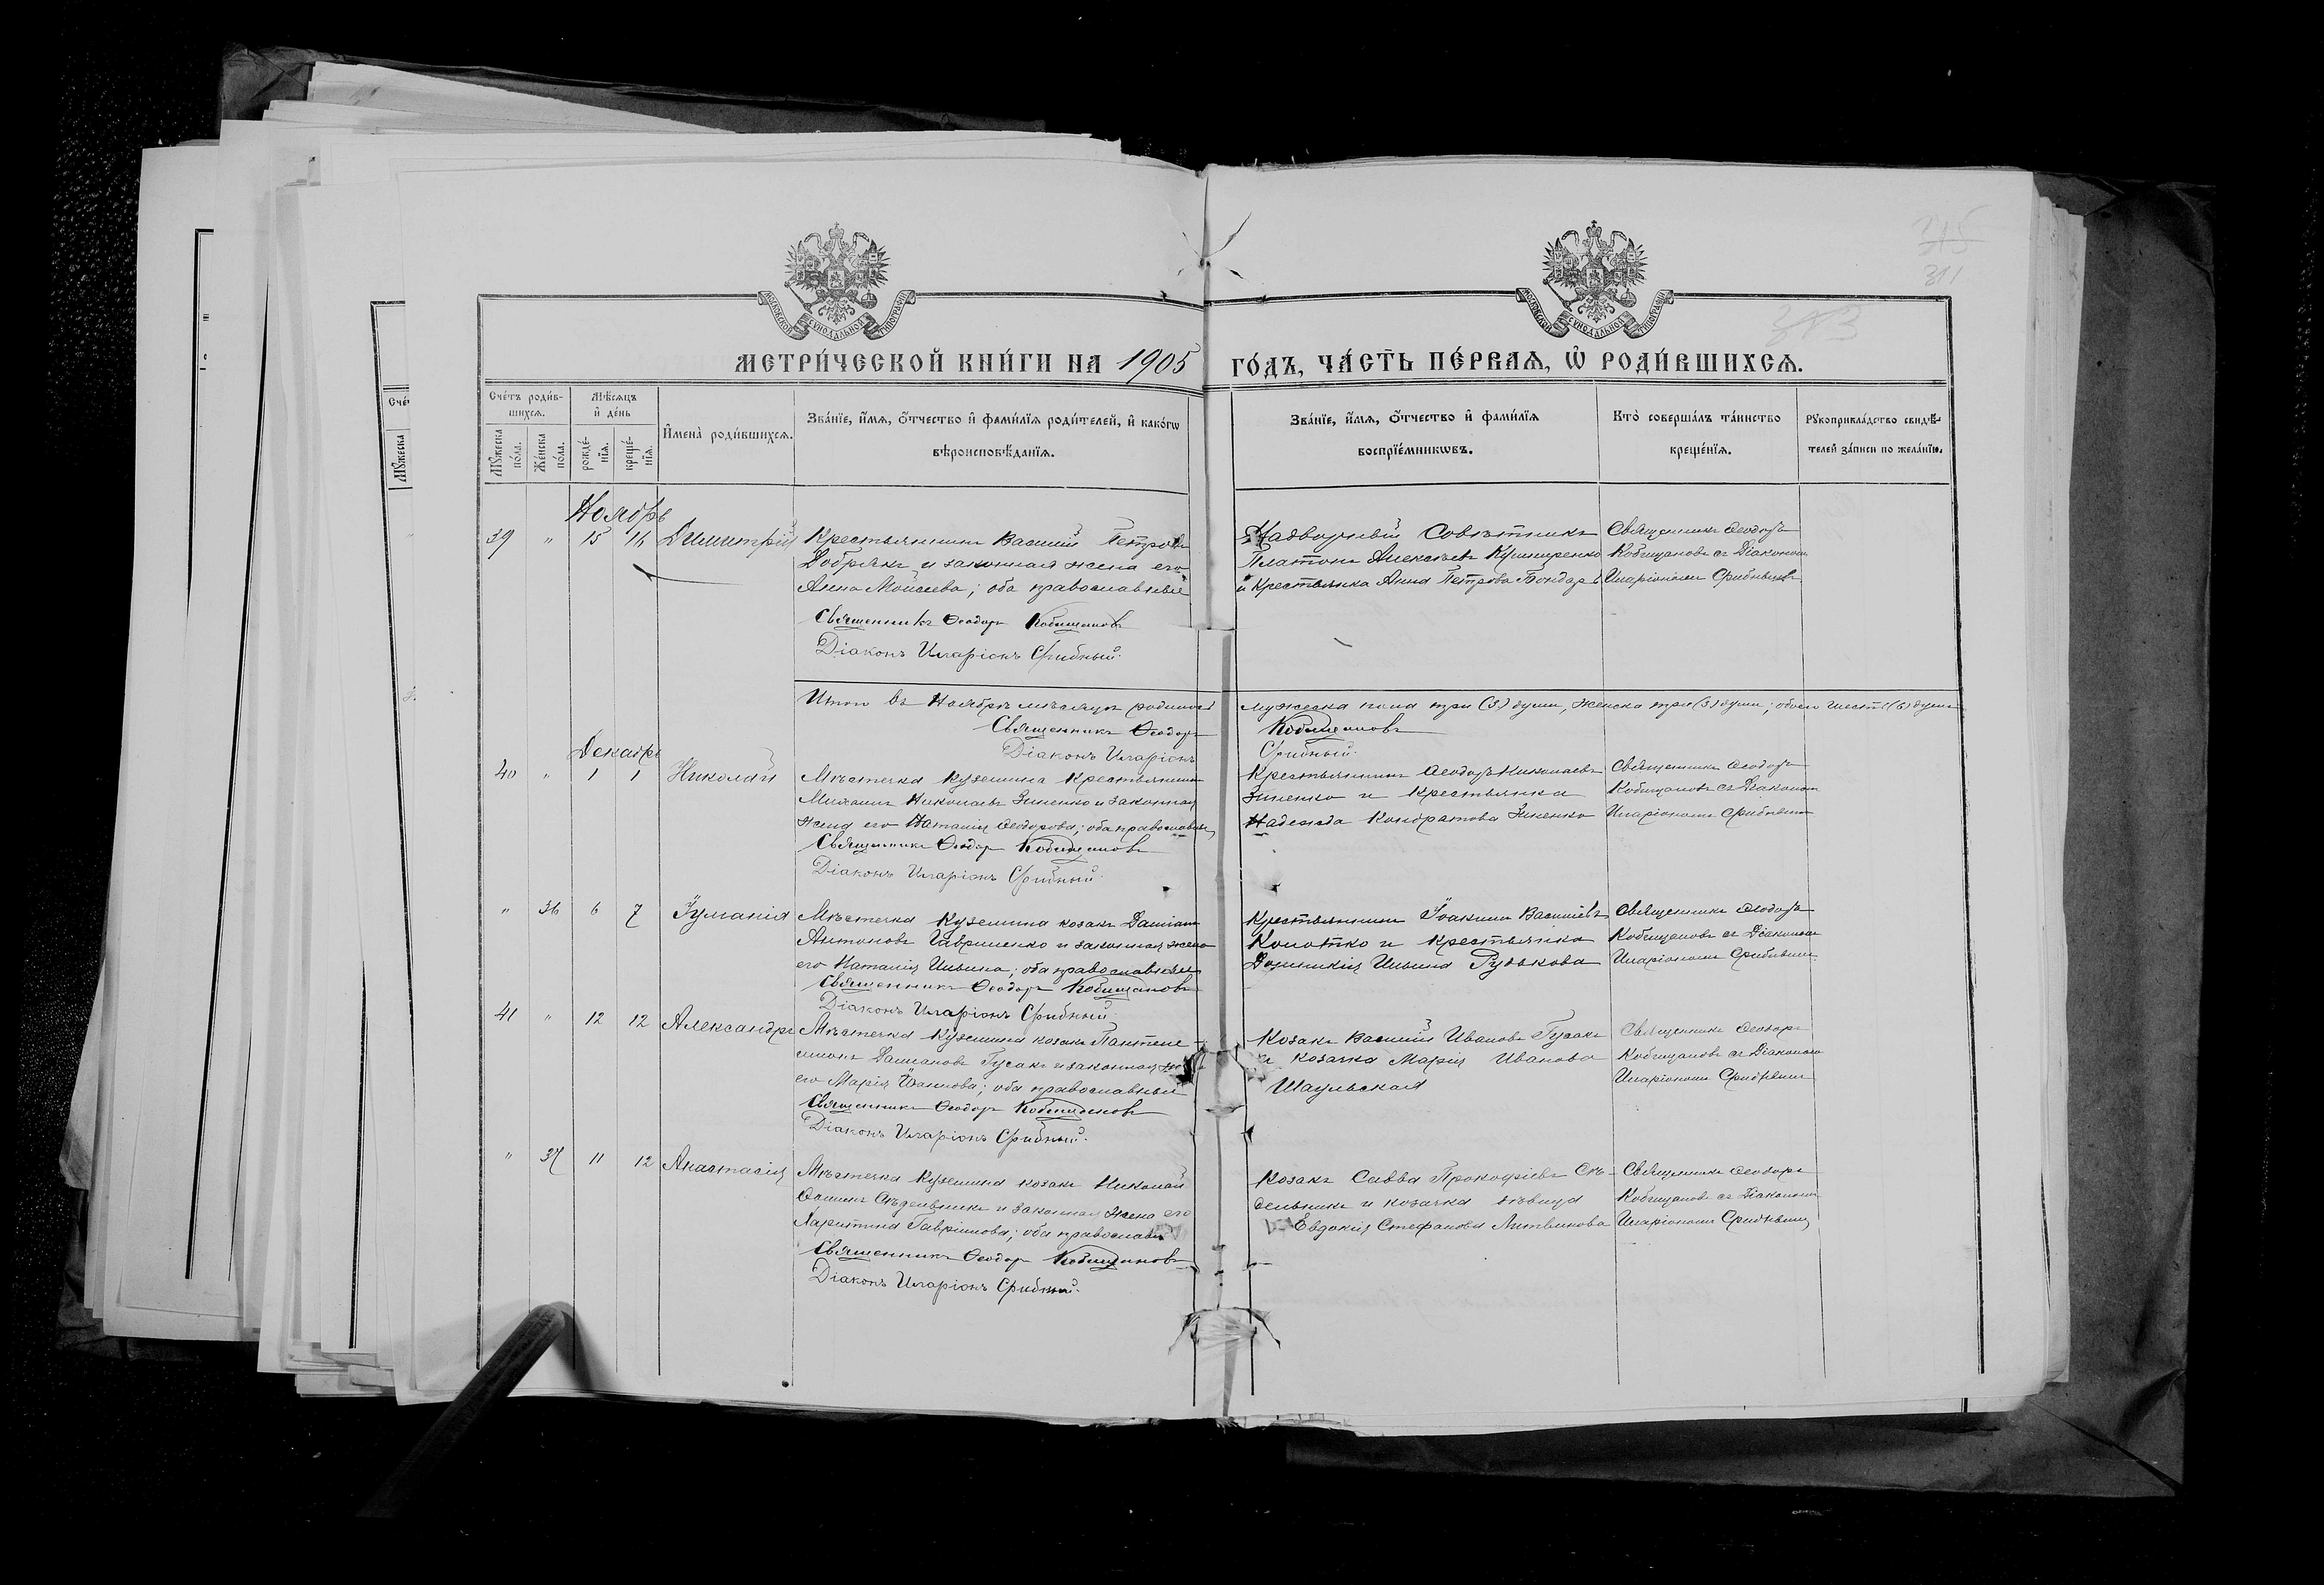 315
311
313
МОСКОВСКОЙ СУНОДАЛЬНОЙ ТИПОГРАФІИ
МОСКОВСКОЙ СУНОДАЛЬНОЙ ТИПОГРАФІИ
МЕТРИ́ЧЕСКОЙ КНИ́ГИ НА 1905 ГО́ДЪ, ЧА́СТЬ ПЕ́РВАЯ, Ѽ РОДИ́ВШИХСЯ.
Сче́тъ роди́в-
шихся.
Мѣ́сяцъ
и҆ де́нь
Мꙋжеска по́ла.
Же́нска по́ла.
рожде́-
нїя.
креще́-
нїя.
И҆мена̀ роди́вшихся.
Зва́нїе, и҆́мя, ѻ҆́тчество и҆ фами́лїя роди́телей, и҆ како́гѡ
вѣроисповѣ́данїя.
Зва́нїе, и҆́мя, ѻ҆́тчество и҆ фами́лїя
воспрїе́мникѡвъ.
Кто̀ соверша́лъ та́инство
креще́нїя.
Рꙋкоприкла́дство свидѣ́-
телей за́писи по жела́нїю.
Ноябрь
39 " 15 16 Димитрій
Крестьянинъ Василій Петровъ
Добрякъ и законная жена его
Анна Моисеева; оба православные
Священникъ Ѳеодоръ Кобищановъ
Діаконъ Иларіонъ Срибный.
Надворный Совѣтникъ
Платонъ Алексѣевъ
и Крестьянка Анна Петрова Бондарь
Священникъ Ѳеодоръ
Кобищановъ съ Діакономъ
Иларіономъ Срибнымъ
Итого въ Ноябрѣ мѣсяцѣ родилось мужеска пола три (3) души, женска три (3) души; обоего шесть (6) душъ
Священникъ Ѳеодоръ Кобищановъ
Діаконъ Иларіонъ Срибный.
Декабрь
40 " 1 1 Николай
Мѣстечка Куземина Крестьянинъ
Михаилъ Николаевъ Зиненко и законная
жена его Наталія Ѳеодорова; оба православные
Священникъ Ѳеодоръ Кобищановъ
Діаконъ Иларіонъ Срибный.
Крестьянинъ Ѳеодоръ Николаевъ
Зиненко и Крестьянка
Надежда Кондратова Зиненко
Священникъ Ѳеодоръ
Кобищановъ съ Діакономъ
Иларіономъ Срибнымъ
" 36 6 7 Іуліанія
Мѣстечка Куземина козакъ Даміанъ
Антоновъ Гавриленко и законная жена
его Наталія Ильина; оба православные
Священникъ Ѳеодоръ Кобищановъ
Діаконъ Иларіонъ Срибный.
Крестьянинъ Іоакимъ Васильевъ
и Крестьянка
Ильина Рудькова
Священникъ Ѳеодоръ
Кобищановъ съ Діакономъ
Иларіономъ Срибнымъ
41 " 12 12 Александръ
Мѣстечка Куземина козакъ Пантеле-
имонъ Даміановъ Гусакъ и законная жена
его Марія Іоаннова; оба православные
Священникъ Ѳеодоръ Кобищановъ
Діаконъ Иларіонъ Срибный.
Козакъ Василій Ивановъ Гусакъ
и козачка Марія Иванова
Шаульская
Священникъ Ѳеодоръ
Кобищановъ съ Діакономъ
Иларіономъ Срибнымъ
" 37 11 12 Анастасія
Мѣстечка Куземина козакъ Николай
Саввинъ Сѣдельникъ и законная жена его
Харитина Гавріилова; оба православн
Священникъ Ѳеодоръ Кобищановъ
Діаконъ Иларіонъ Срибный.
Козакъ Савва Прокофіевъ Сѣ-
дельникъ и козачка дѣвица
Евдокія Стефанова Литвинова
Священникъ Ѳеодоръ
Кобищановъ съ Діакономъ
Иларіономъ Срибнымъ
Сче́
Мꙋжеска